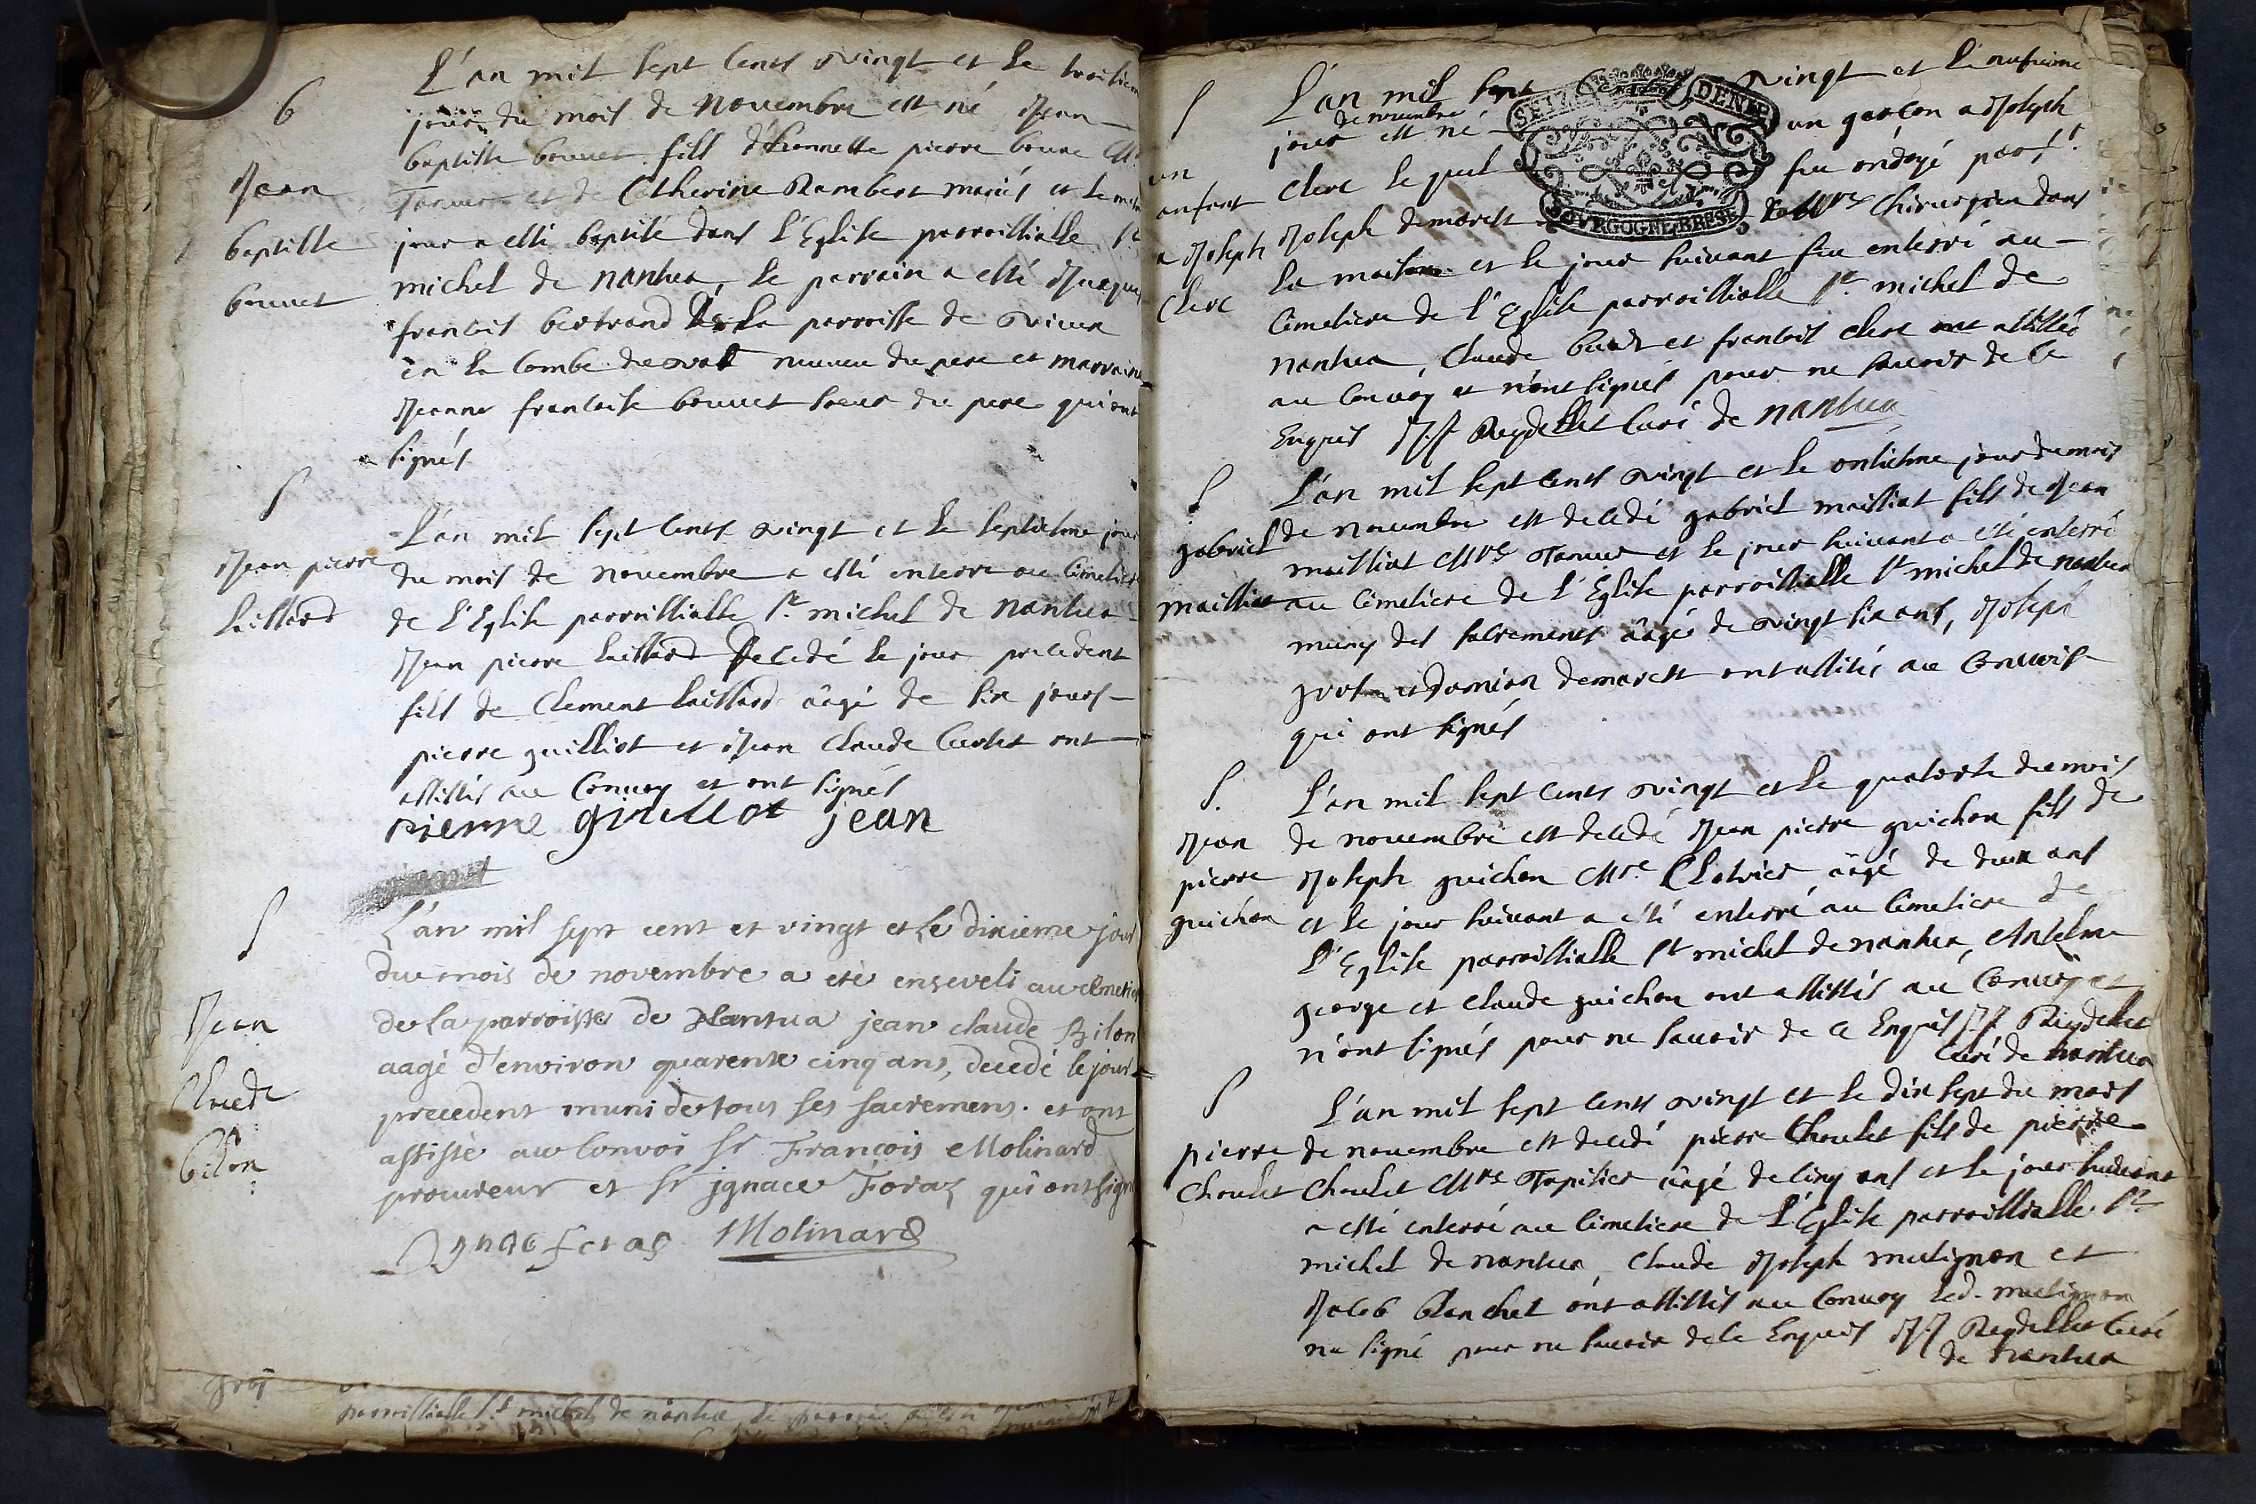 6
Jean
baptiste
bouuet
L'an mil sept cents vingt et le troisiem
jour du mois de Novembre est né Jean
baptiste bouuet fils d'honneste pierre bouue Mr
Tanneur et de Catherine Rambert mariés et le mesm
jour a esté baptisé dans L'Eglise parroissialle St
michel de nantua, le parrain a esté Jacques
francois bertrand De la parroisse de vieux
en la Combe de neueu du pere et marraine
Jeanne francoise bouuet soeur du pere qui ont
signés
S
Jean pierre
Laillard
L'an mil sept cents vingt et le septiesme jour
du mois de novembre a esté enterré au Cimetier
de L'Eglise parroissialle St michel de Nantua
Jean pierre Laillard Decedé le jour precedent
fils de Clement Laillard âagé de six jours
pierre guilliot et Jean Claude ont
assistés au Conuoy et ont signés
pierre guilliot jean
S
Jean
Claude
bilon
L'an mil sept cent et vingt et le dixieme jour
du mois de novembre a eté enseveli au cimetier
de la parroisse de Nantua jean claude Bilon
aagé d'environ quarente cinq ans, decedé le jour
precedent muni de tous ses sacremens. et ont
assisté au Convoi sr François Molinard
procureur et sr jgnace Foraz qui ont signé
Jgnace foras Molinard
parroissialle St michel de nantua le parrain a esté
S
un
enfant
a Joseph
Clerc
L'an mil sept SEIZE DENIE vingt et le neufieme
de nouembre
jour est né un garçon a Joseph
Clerc lequel fu ondoyé par sr
Joseph demarest BOVRGOGNE BRESSE Chirurgien dans
la maison et le jour suiuant fu enterré au
Cimetiere de l'Eglise parroissialle St michel de
nantua, Claude et francois clerc ont assistés
au Conuoy et n'ont signés pour ne sauoir de ce
Enquis J.J Reydellet Curé de nantua
S
gabriel
mailliat
L'an mil sept cents vingt et le onsiesme jour du mois
de nouembre est decedé gabriel mailliat fils de Jean
mailliat Mre Tanneur et le jour suiuant a eté enterré
au Cimetiere de l'Eglise parroissialle St michel de nantua
muny des sacrements âagé de vingt six ans, Joseph
gros et Damian demarest ont assistés au Conuois
qui ont signés
S.
Jean
pierre
guichon
L'an mil sept cents vingt et le quatorse du mois
de nouembre est decedé Jean pierre guichon fils de
Joseph guichon Mre âagé de deux ans
et le jour suiuant a été enterré au Cimetiere de
L'Eglise parroissialle St michel de nantua, Antelme
george et Claude guichon ont assistés au Conuoy et
n'ont signés pour ne sauoir de ce Enquis J.J Reydellet
Curé de nantua
S
pierre
Choulet
L'an mil sept cents vingt et le dix sept du mois
de nouembre est decedé pierre Choulet fils de pierre
Choulet Mre Tapisier âagé de cinq ans et le jour suiuant
a esté enterré au Cimetiere de L'Eglise parroissialle St
michel de nantua, Claude Joseph matignon et
Jacob blanchet ont assistés au Conuoy led. matignon
na signé pour ne sauoir de ce Enquis J.J Reydellet Curé
de nantua